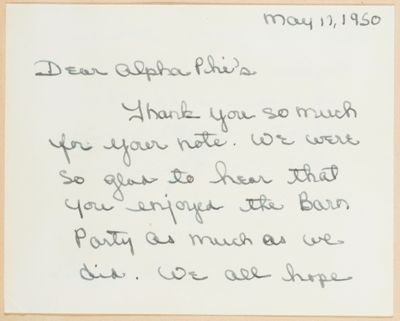 May 17, 1950
Dear Alpha Phi's
Thank you so much
for your note. We were
so glad to hear that
you enjoyed the Barn
Party as much as we
did. We all hope